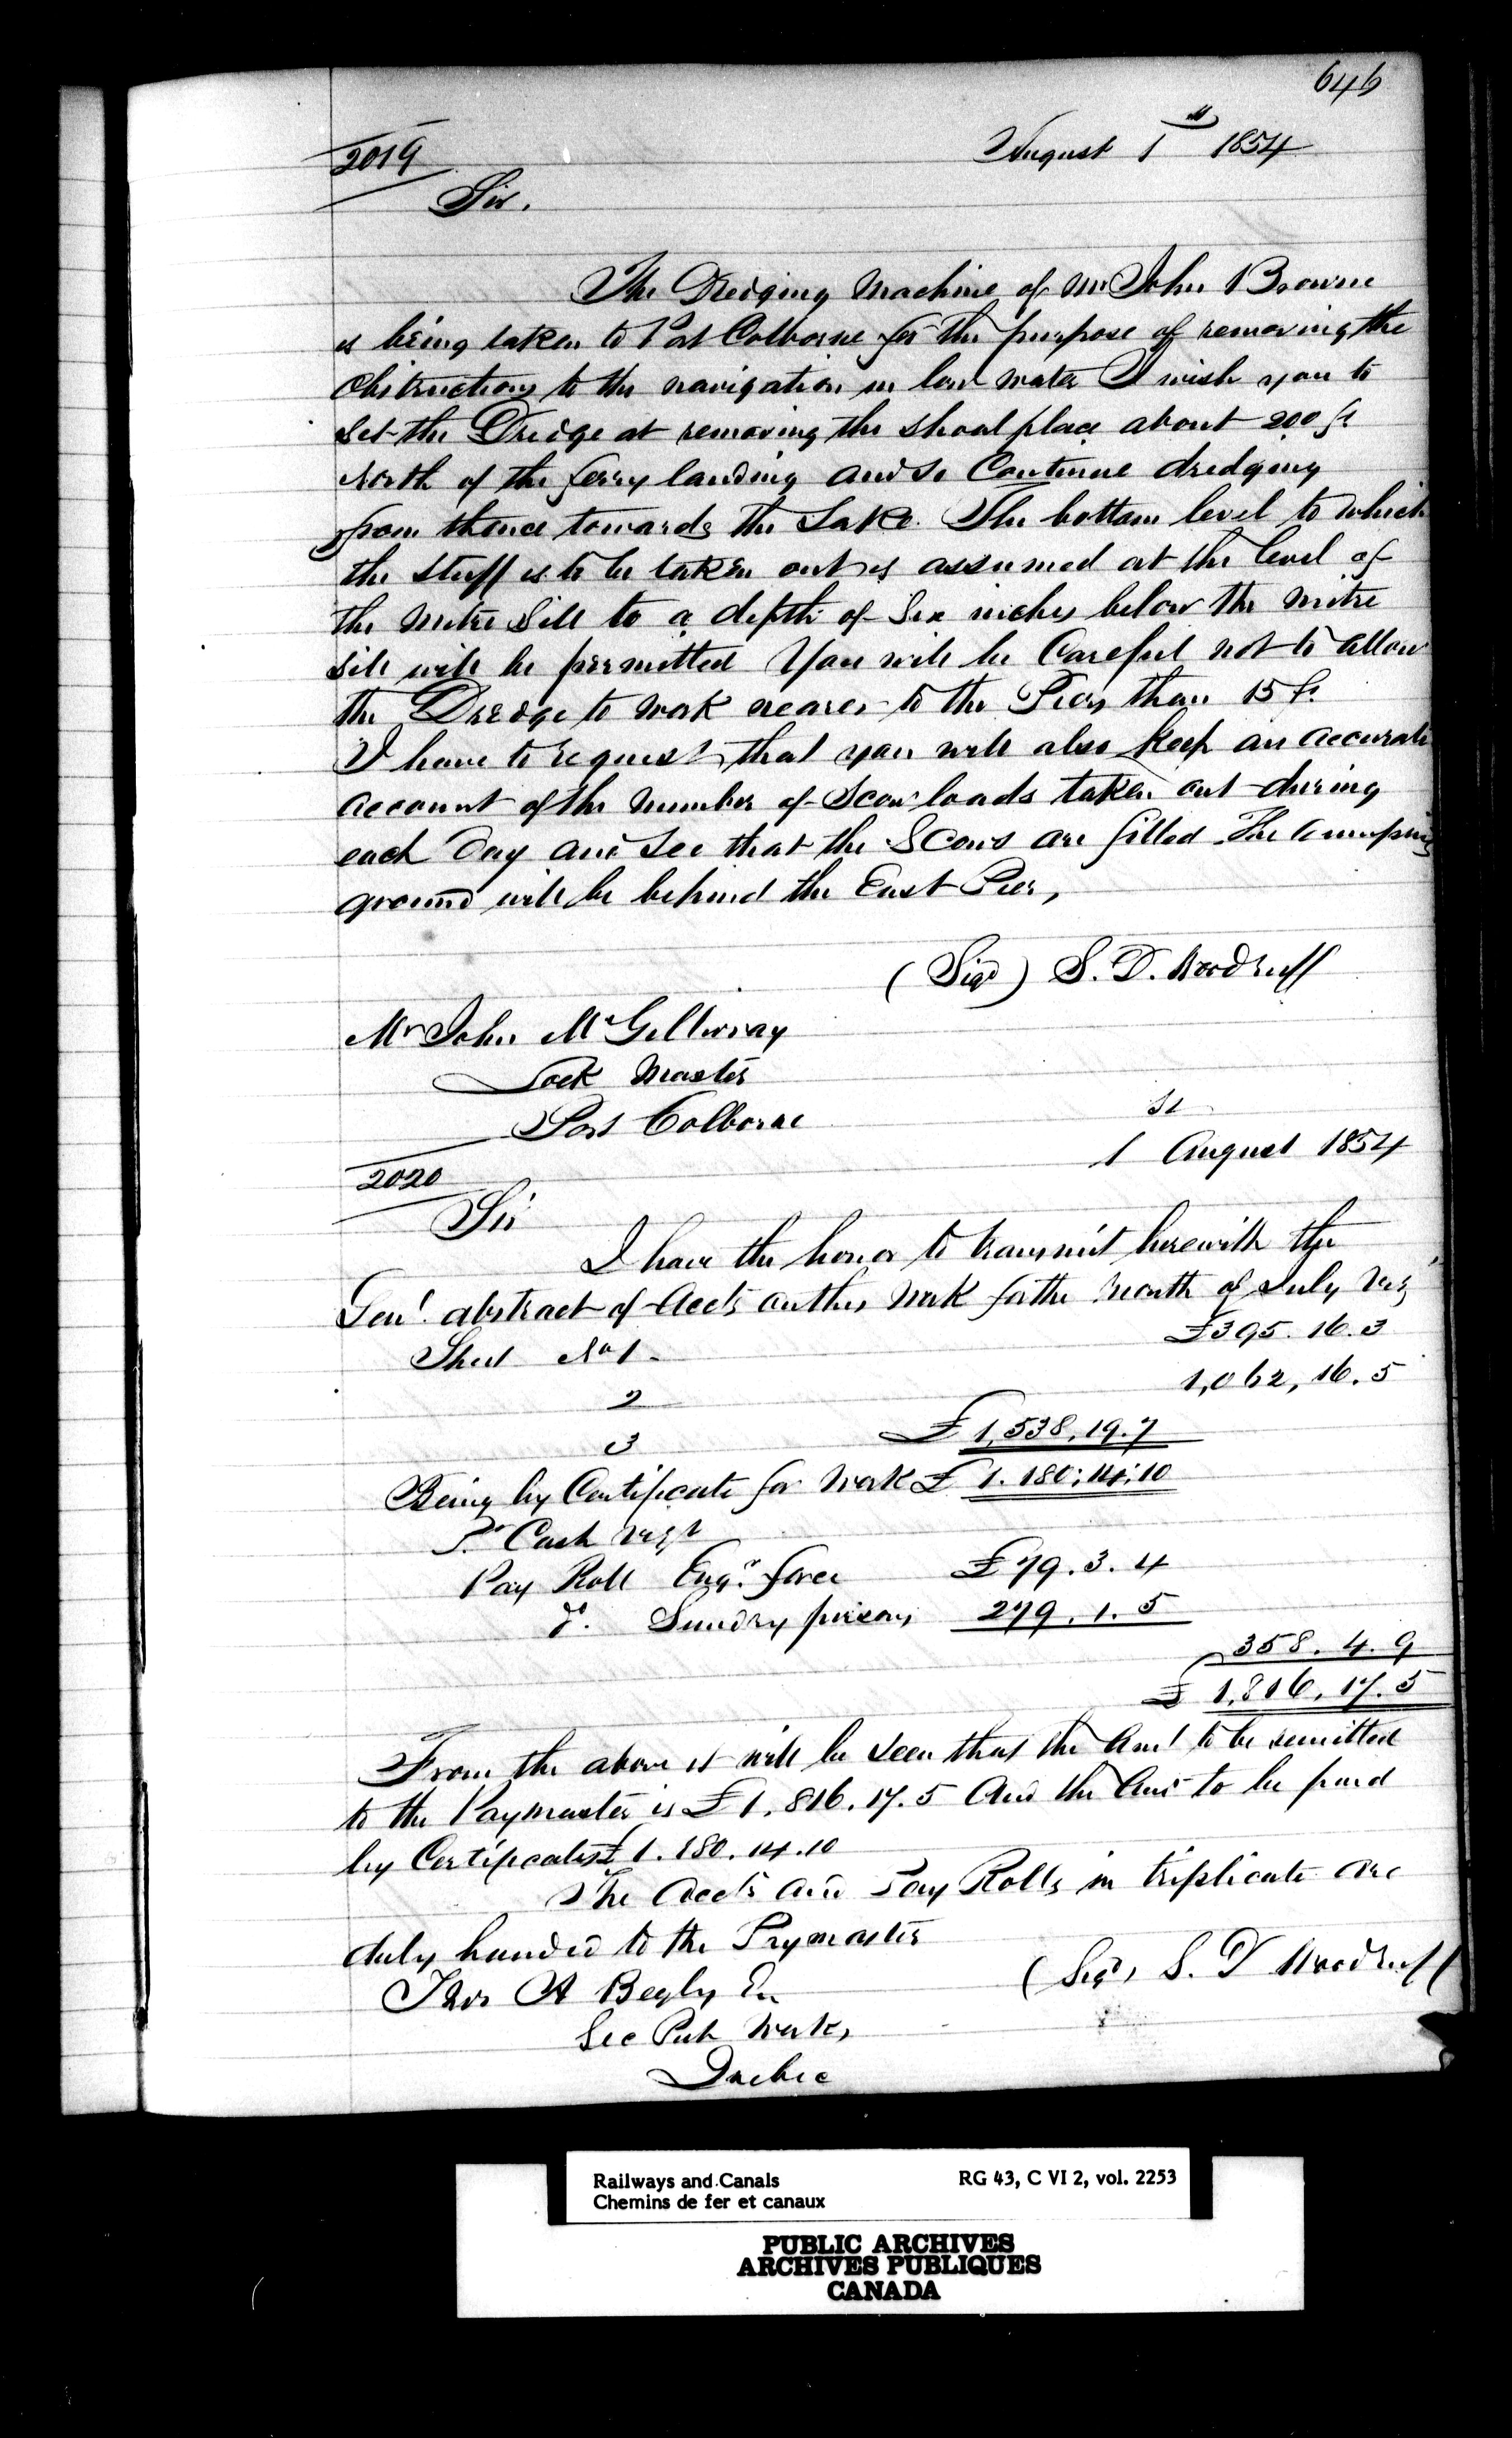 646
2019
August 1st 1854
Sir.
The Dredging Machine of Mr John Browne
is being taken to Port Colborne for the purpose of removing the
Obstructions to the navigation in low water I wish you to
Set the Dredge at removing the shoal place about 200 ft
North of the ferry landing and so Continue dredging
from thence towards the Lake. The bottom level to which
the stuff is to be taken out is assumed at the level of
the Mitre Sill to a depth of Six inches below the mitre
sill will be permitted You will be Careful not to allow
the Dredge to work nearer to the Piers than 15 ft.
I have to request that you will also keep an accurate
account of the number of Scow loads taken out during
each Day and See that the Scows are filled The dumping
ground will be behind the East Pier,
(Sigd) S. D. Woodruff
Mr John McGilivray
Lock Master
Port Colborne
2020
1st August 1854
Sir
I have the honor to transmit herewith the
Genl. abstract of Accts on this work for the Month of July viz
Sheet No 1 £395.16.3
2 1,062,16.5
3 £1,538,19.7
Being by Certificate for Work £1.180;14;10
Pr Cash vizt
Pay Roll Engr. force £79.3.4
do. Sundry persons 279.1.5
358.4.9
£1,816,17.5
From the above it will be seen that the Amt to be remitted
to the Paymaster is £1,816.17.5 And the Amt to be paid
by Certificates £1.180.14.10
The Accts and Pay Rolls in triplicate are
duly handed to the Paymaster
(Sigd) S. D Woodruff
Thos A Begly Er
Sec Pub Works,
Quebec
Railways and Canals
Chemins de fer et canaux
RG 43, C VI 2, vol. 2253
PUBLIC ARCHIVES
ARCHIVES PUBLIQUES
CANADA